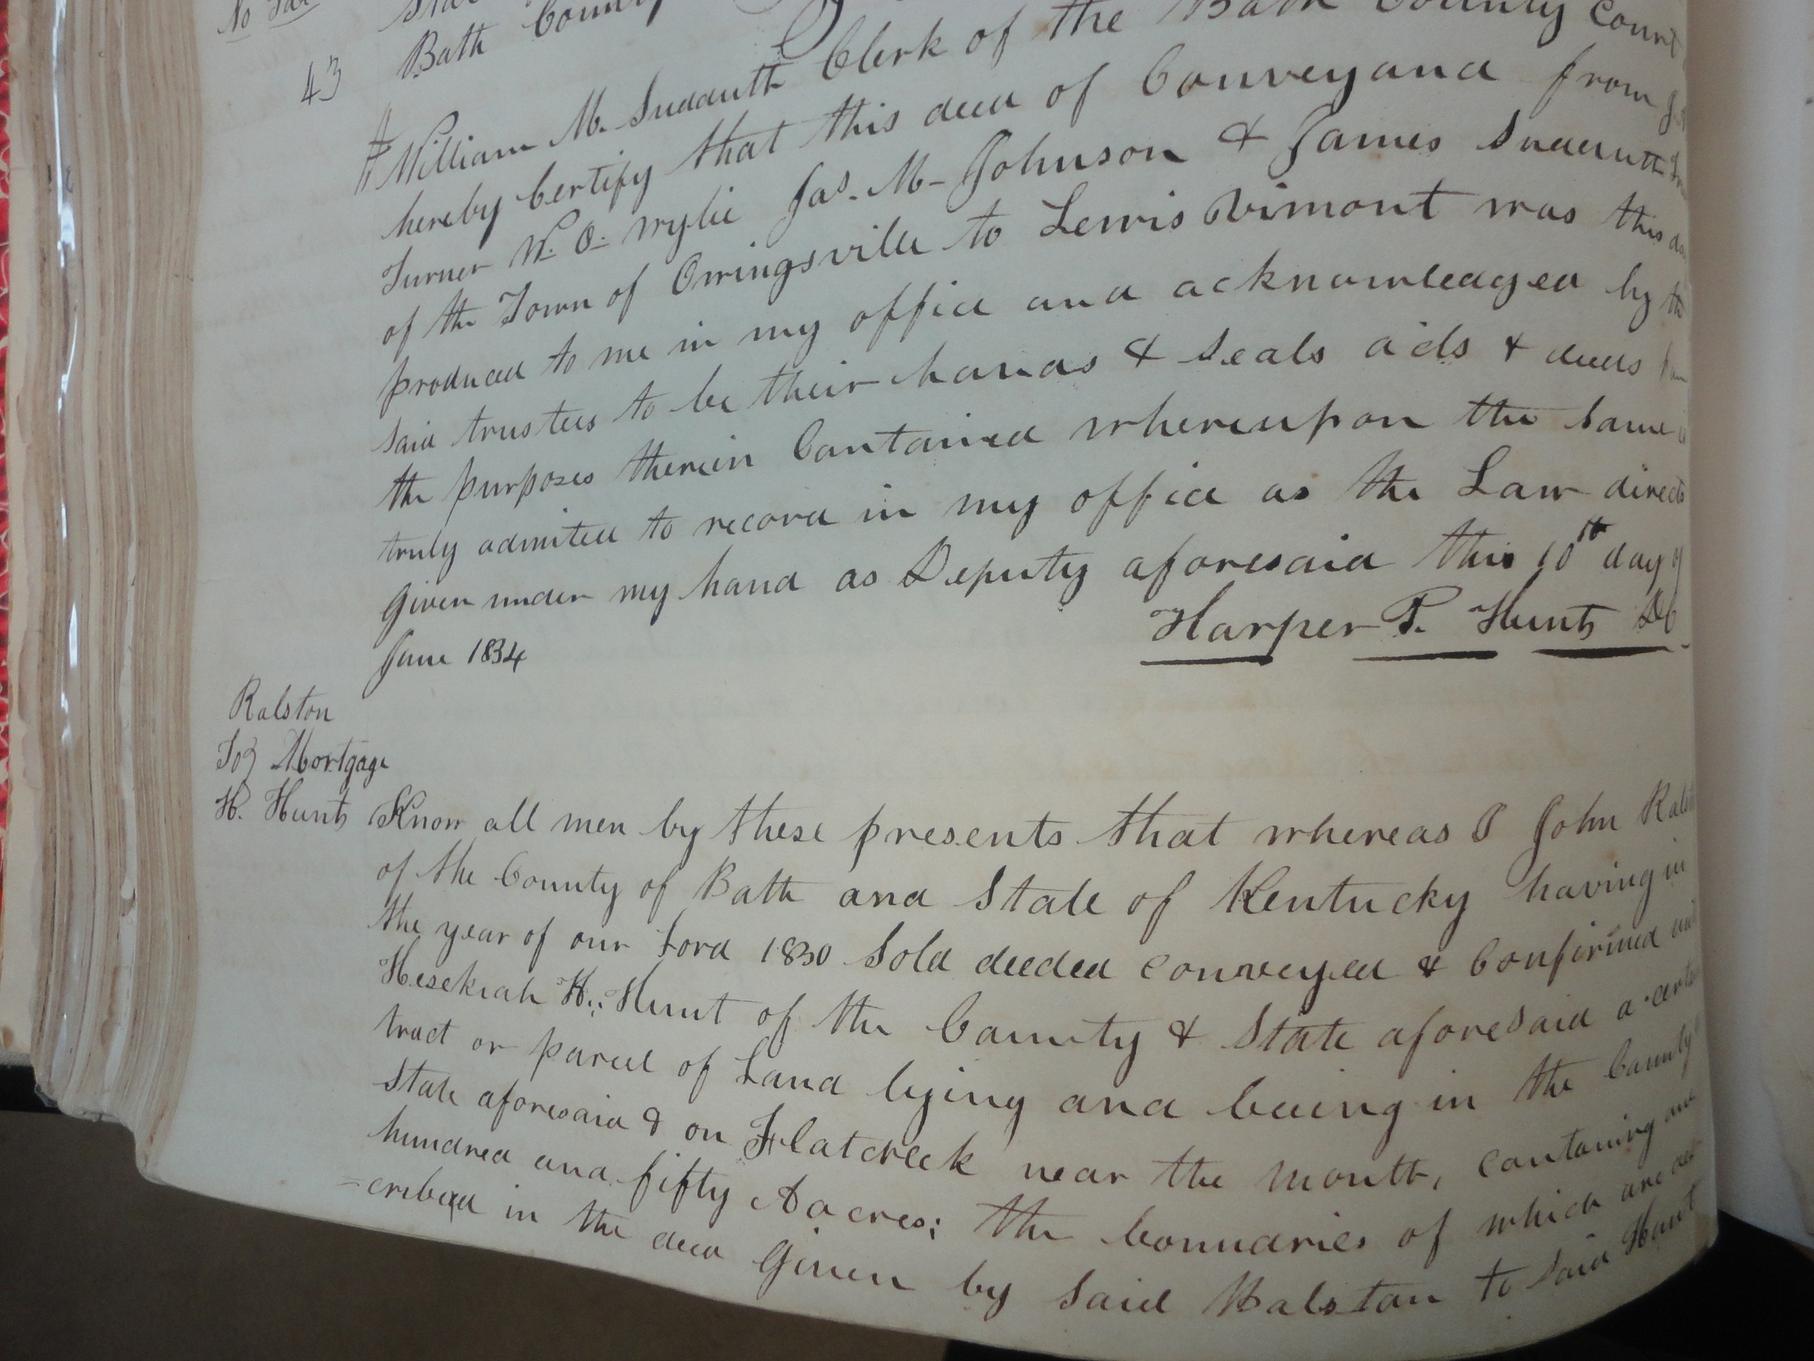 No
43 Bath County
William M. Sudduth Clerk of the Bath County Court
hereby Certify that this deed of Conveyance from
Turner W. O. Wylie Jas. M. Johnson & James Sudduth
of the Town of Owingsville to Lewis Vimont was this
produced to me in my office and acknowledged by the
said trustees to be their hands & seals acts & deeds
the purposes therein Contained whereupon the same
truly admited to record in my office as the Law directs
Given under my hand as Deputy aforesaid this 10th day of
June 1834
Harper P. Hunts DC
Ralston
To} Mortgage
H. Hunts
Know all men by these presents that whereas I John Ralst
of the County of Bath and State of Kentucky having in
the year of our Lord 1830 Sold deeded conveyed & Confirmed
Hesekiah H. Hunt of the County & State aforesaid a certa
tract or parcel of Land lying and being in the County
State aforesaid & on Flatcreek near the mouth, contaning one
hundred and fifty Aacres; the bounuaries of which are des
-cribed in the deed Given by Said Ralston to Said Hunt